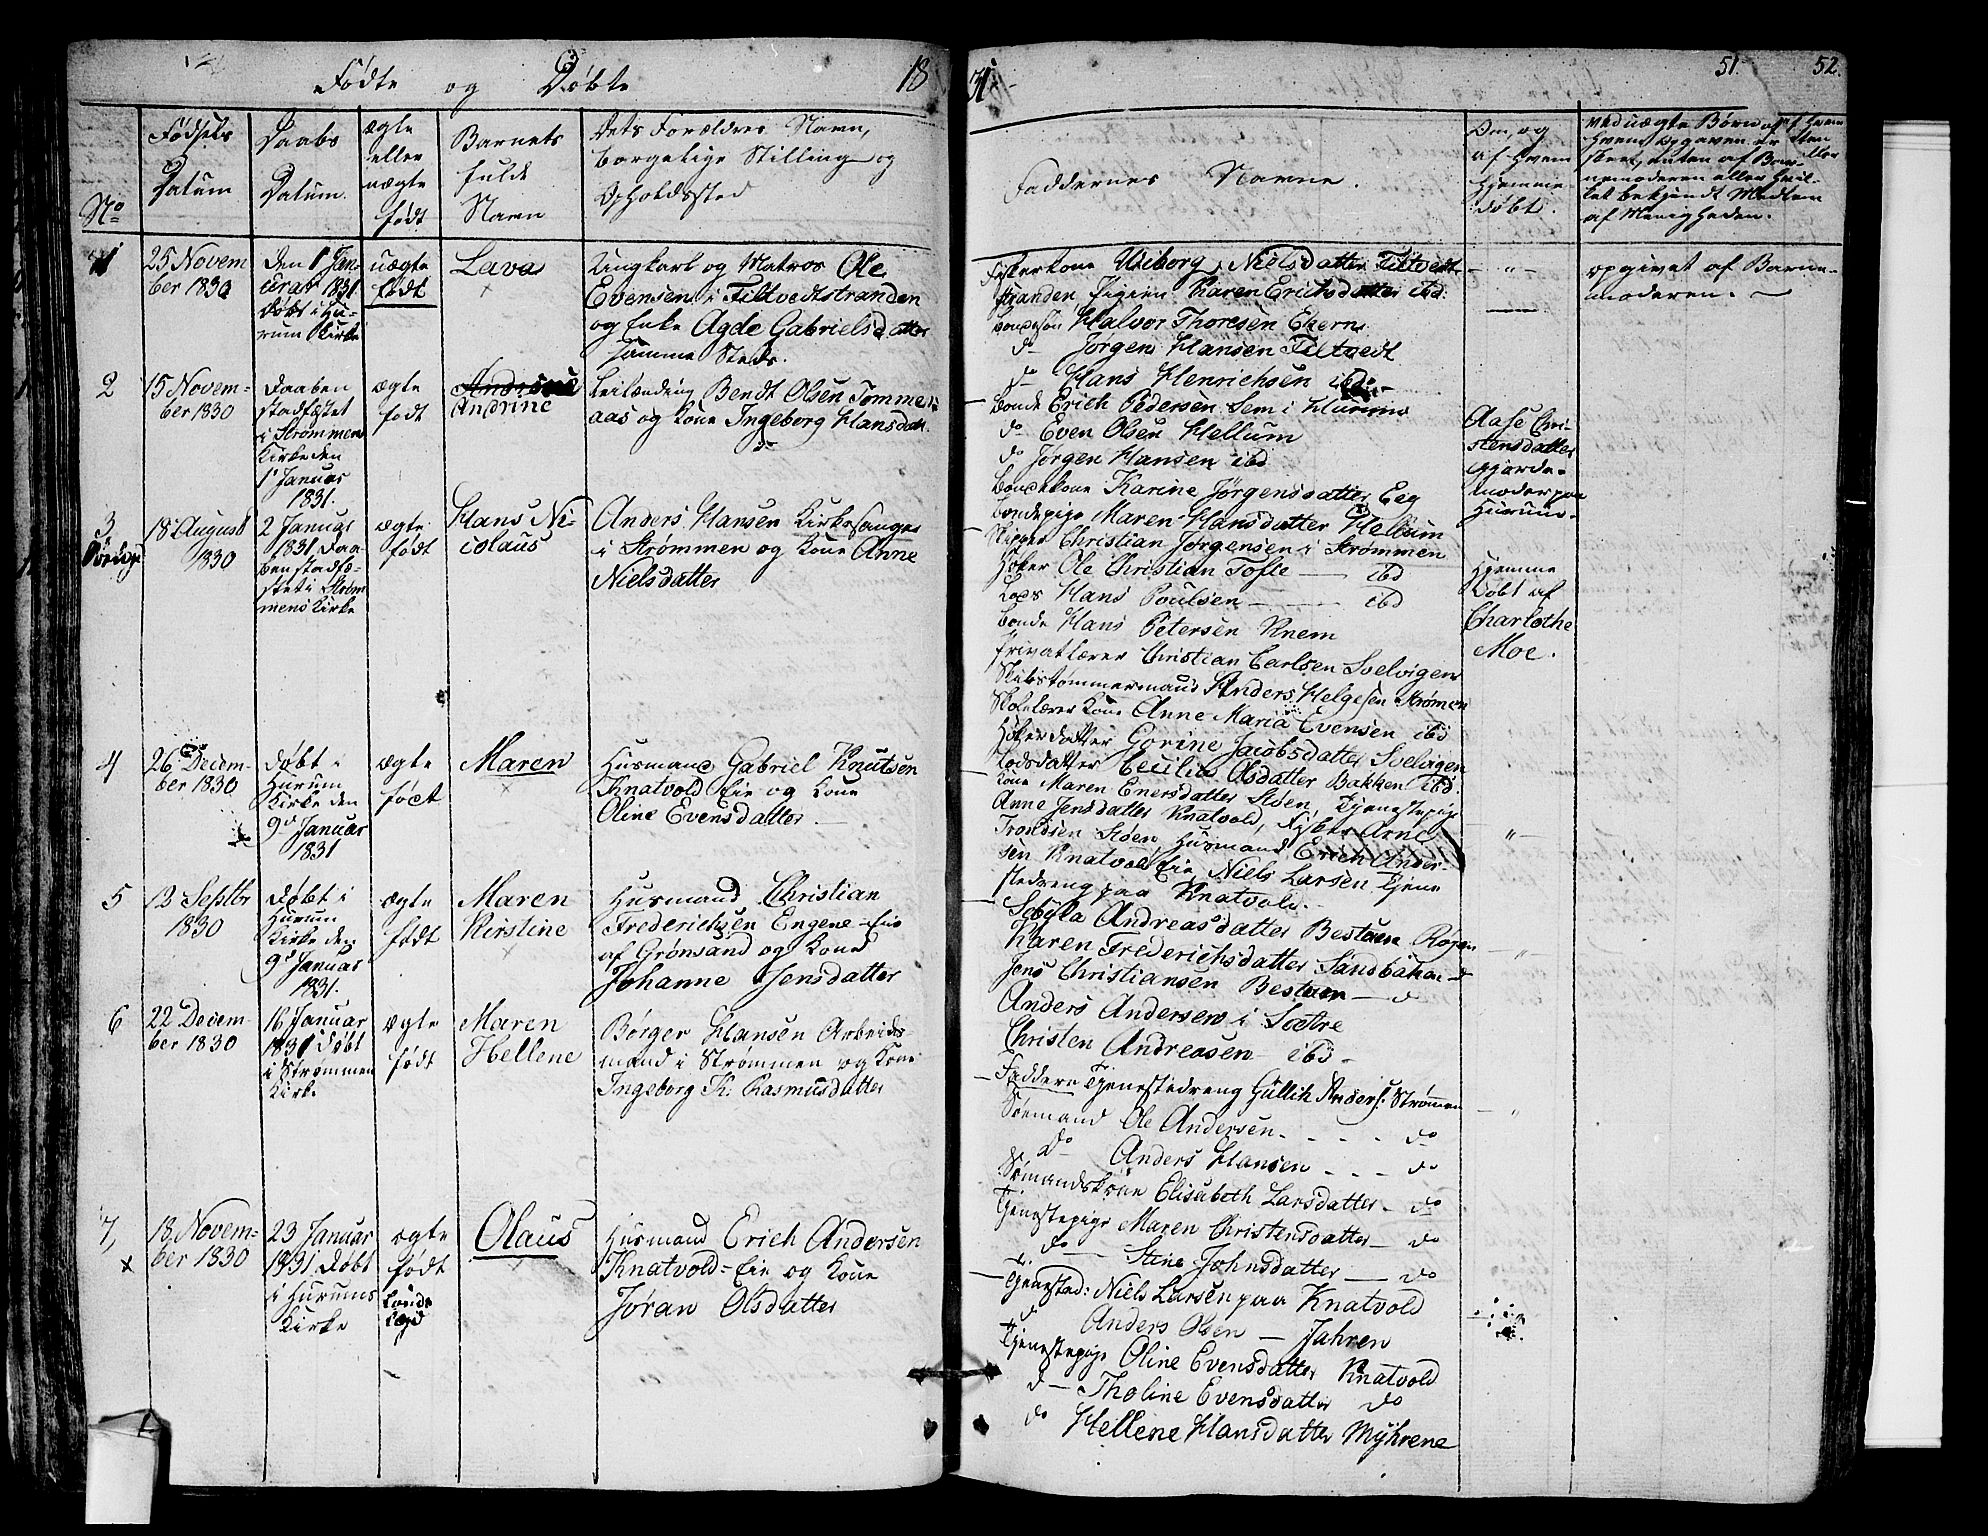 Födte og Döbte 18
31.
51.
52.
No
Födsels
Datum
Daabs
Datum.
ægte
eller
uægte
födt
Barnets
fulde
Navn
Dets Forældres Navn,
borgerlige Stilling og
Opholdssted
Faddernes Navne.
Om, og
af hvem
hjemme-
döbt.
Ved uægte Börn af hvem
Opgaven er
skeet, enten af Bar-
nemoderen eller hvil-
ket bekjendt Medlem
af Menigheden.
1
25 Novem
ber 1830
Den 1 Jan-
uar 1831
döbt i Hu-
rum Kirke
uægte
födt
Lava
Ungkarl og Matros Ole
Evensen i Tiltvedtstranden
og Enke Agde Gabrielsdatter
samme Steds.
Fiskerkone Wiborg Nielsdatter Tiltvedt
stranden Pigen Karen Erichsdatter ibd.
Bondesön Halvor Thoresen Ekern
do Jörgen Hansen Tiltvedt
do Hans Henrichsen ibd
opgivet af Barne-
moderen.
2
15 Novem-
ber 1830
Daaben
stadfæstet
i Strömmen
Kirke den
1 Januar
1831.
ægte
födt
Andrine
Leilænding Bendt Olsen Tømme-
aas og Kone Ingeborg Hansdatr.
Bonde Erich Pedersen Sem i Hurum
do Even Olsen Hellum
do Jörgen Hansen ibd
Bondekone Karine Jörgensdatter Eeg
Bondepige Maren Hansdatter Hellum
Aase Chri-
stensdatter
Gjorde-
moder paa
Hurum.
3
18 August
1830
2 Januar
1831. Daa-
ben stadfæ-
stet i Ström-
mens Kirke
ægte
födt
Hans Ni-
colaus
Anders Hansen Kirkesanger
i Strömmen og Kone Anne
Nielsdatter
Skipper Christian Jörgensen i Strömmen
Höker Ole Christian Tofte ibd
Lods Hans Poulsen ibd
Bonde Hans Petersen Knem
Privatlærer Christian Carlsen Svelvigen
Skibstömmermand Anders Helgesen Strömen
Skolelærer Kone Anne Maria Evensen ibd
Höker datter Gorine Jacobsdatter Svelvigen
Lodsdatter Cecilia Olsdatter Bakken ibd.
Hjemme
döbt af
Charlothe
Moe.
4
26 Decem-
ber 1830
döbt i
Hurum
Kirke den
9d Januar
1831
ægte
födt
Maren
Husmand Gabriel Knutsen
Knatvold Eie og Kone
Oline Evensdatter.
Kone Maren Enersdatter Stöen, Tjenestepige
Anne Jensdatter Knatvold, Fisker Arne
Trondsen Stöen, Husmand Erich Ander-
sen Knatvold Eie, Niels Larsen Tjene
stedreng paa Knatvold.
5
12 Septbr
1830
döbt i
Hurum
Kirke den
9d Januar
1831.
ægte
födt
Maren
Kirstine
Husmand Christian
Frederichsen Engene-Eie
af Grönsand og Kone
Johanne Jensdatter
Sibylla Andreasdatter Bestuen Rögen
Karen Frederichsdatter Sandbakken do
Jens Christiansen Bestuen do
Anders Andersen i Sætre
Christen Andreasen ibd.
6
22 Decem-
ber 1830
16 Januar
1831 döbt
i Strømmen
Kirke
ægte
födt
Maren
Hellene
Börger Hansen Arbeids-
mand i Strømmen og Kone
Ingeborg K. Rasmusdatter
Faddere Tjenestedreng Gullik Anders. Strömmen
Sömand Ole Andersen do
do Anders Hansen do
Sömandskone Elisabeth Larsdatter do
Tjenestepige Maren Christensdatter do
do Stine Johnsdatter do
7,
18 Novem-
ber 1830
23 Januar
1831. döbt
i Hurums
Kirke
ægte
födt
Olaus
Husmand Erich Andersen
Knatvold-Eie og Kone
Jöran Olsdatter
Tjenested: Niels Larsen paa Knatvold
do Anders Olsen Jahren
Tjenestepige Oline Evensdatter Knatvold
do Tholine Evensdatter do
do Hellene Hansdatter Myhrene